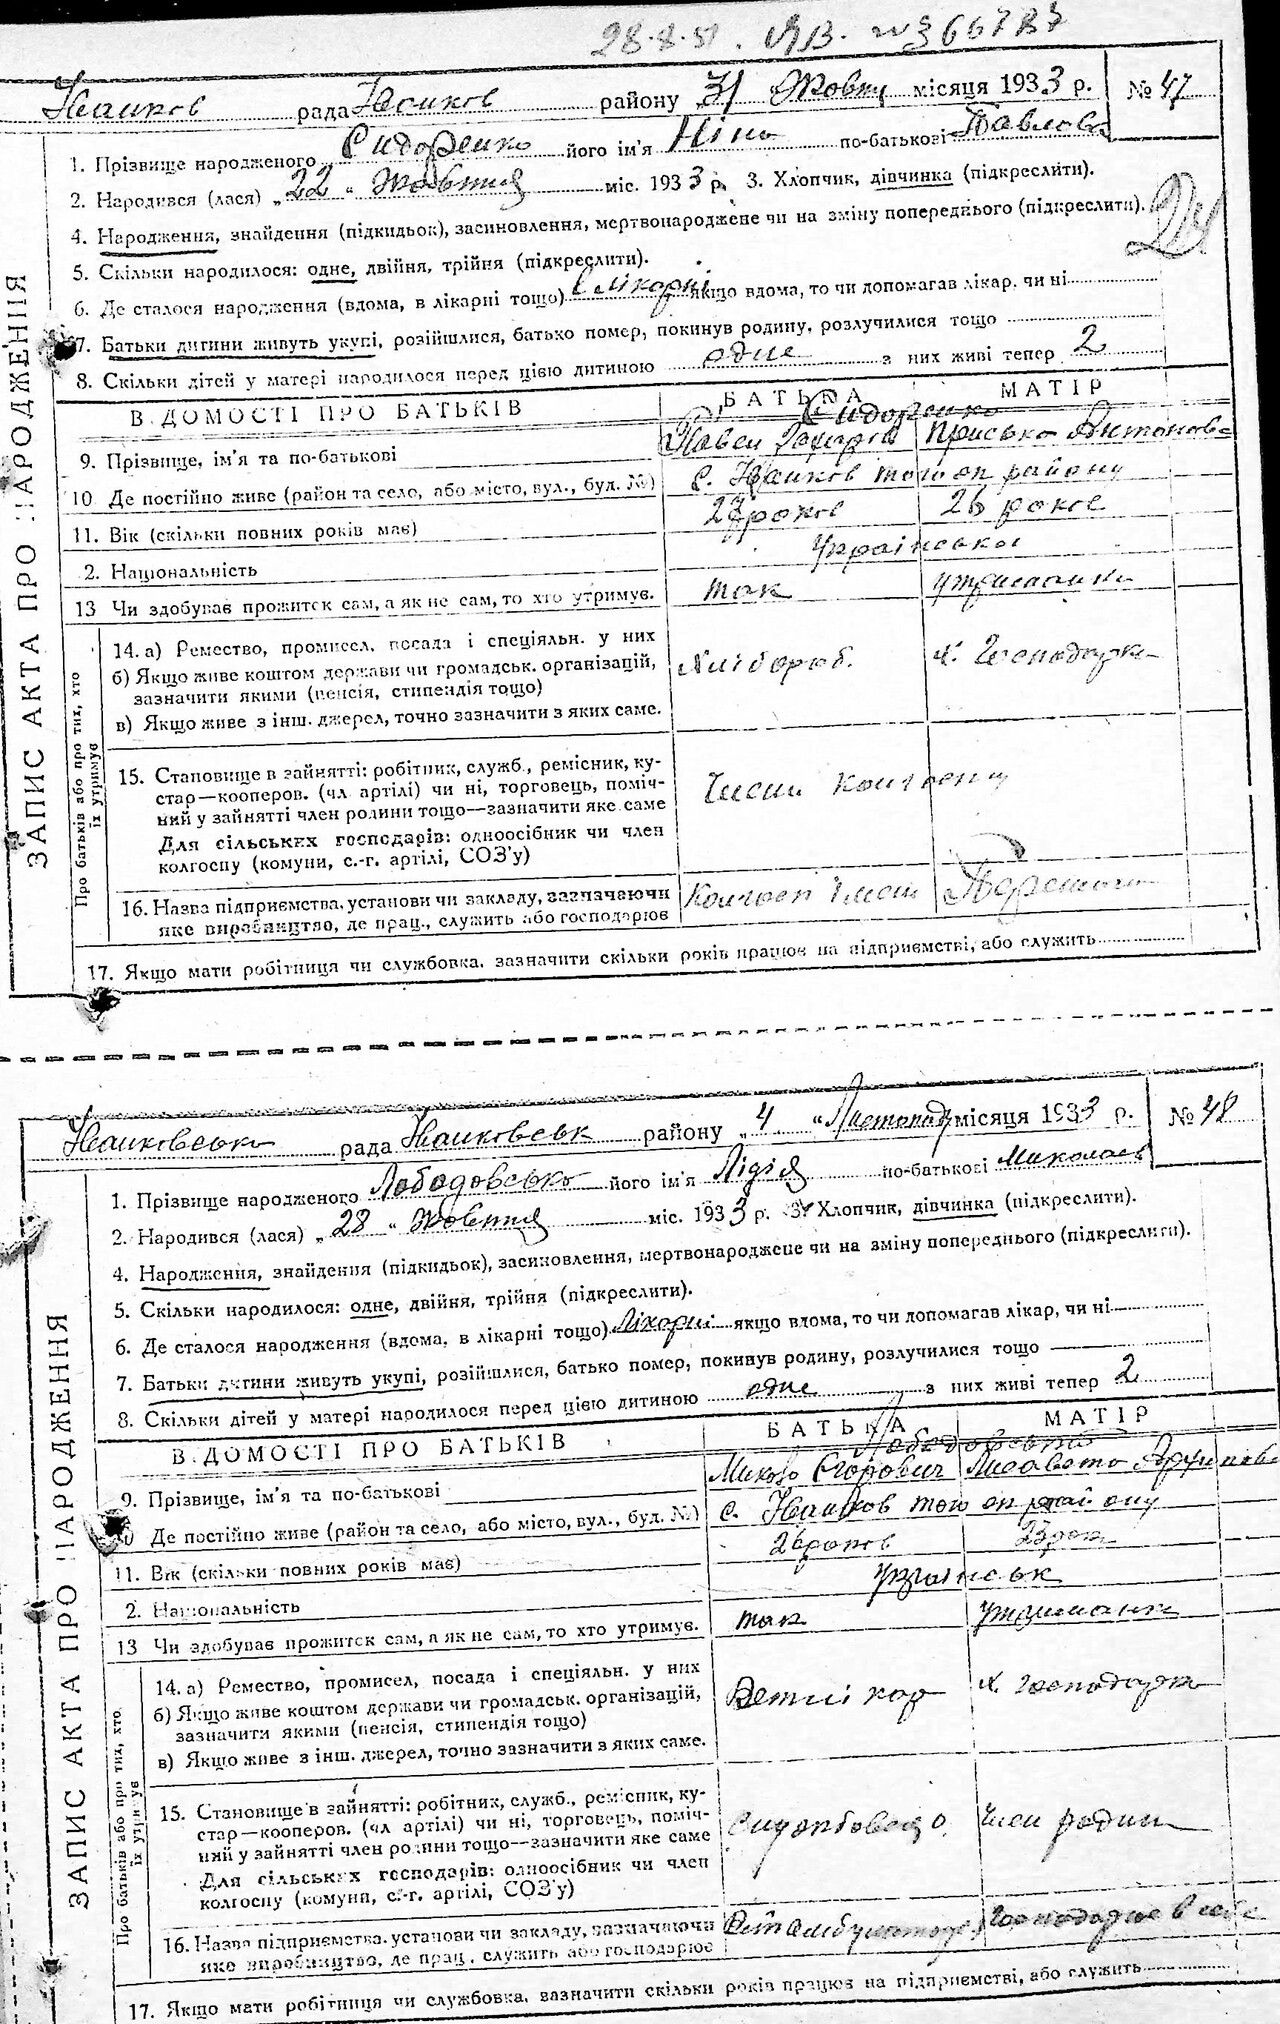 28·8·51. ИВ. №366787
Іванков рада Іванков району „31 Жовтн місяця 1933 р. № 47
1. Прізвище народженого Сидоренко його ім'я Ніна по-батькові Павлова
2. Народився (лася) „22 „ Жовтня міс. 1933 р. 3. Хлопчик, дівчинка (підкреслити).
4. Народження, знайдення (підкидьок), засиновлення, мертвонароджене чи на зміну попереднього (підкреслити).
5. Скільки народилося: одне, двійня, трійня (підкреслити).
6. Де сталося народження (вдома, в лікарні тощо) в лікарні якщо вдома, то чи допомагав лікар, чи ні
7. Батьки дитини живуть укупі, розійшлися, батько помер, покинув родину, розлучилися тощо
8. Скільки дітей у матері народилося перед цією дитиною одне з них живі тепер 2
В ДОМОСТІ ПРО БАТЬКІВ БАТЬКА МАТІР
Сидоренко
9. Прізвище, ім'я та по-батькові Павел Приська Антонова
10 Де постійно живе (район та село, або місто, вул., буд. №) с. Іванков того ж району
11. Вік (скільки повних років має) 28 роков 26 роков
2. Національність Українська
13 Чи здобував прожиток сам, а як не сам, то хто утримує. так утриманка
14. а) Ремество, промисел, посада і спеціяльн. у них
б) Якщо живе коштом держави чи громадськ. організацій,
зазначити якими (пенсія, стипендія тощо) Хлібороб. х. господарка
в) Якщо живе з інш. джерел, точно зазначити з яких саме.
15. Становище в зайнятті: робітник, служб., ремісник, ку-
стар—кооперов. (чл артілі) чи ні, торговець, поміч-
ний у зайнятті член родини тощо—зазначити яке саме Члени колгоспу
Для сільських господарів: одноосібник чи член
колгоспу (комуни, с.-г. артілі, СОЗ'у)
16. Назва підприємства, установи чи закладу, зазначаючи Колгосп
яке виробництво, де прац., служить або господарює
17. Якщо мати робітниця чи службовка, зазначити скільки років працює на підприємстві, або служить
ЗАПИС АКТА ПРО НАРОДЖЕННЯ
Про батьків або про тих, хто
їх утримує
Іванковська рада Іванковськ району „4 „Листопад місяця 1933 р. № 48
1. Прізвище народженого Лободовсько його ім'я Лідія по-батькові Миколаев
2. Народився (лася) „28 „ Жовтня міс. 1933 р. 3. Хлопчик, дівчинка (підкреслити).
4. Народження, знайдення (підкидьок), засиновлення, мертвонароджене чи на зміну попереднього (підкреслити).
5. Скільки народилося: одне, двійня, трійня (підкреслити).
6. Де сталося народження (вдома, в лікарні тощо) Лікарні якщо вдома, то чи допомагав лікар, чи ні
7. Батьки дитини живуть укупі, розійшлися, батько помер, покинув родину, розлучилися тощо
8. Скільки дітей у матері народилося перед цією дитиною одне з них живі тепер 2
В ДОМОСТІ ПРО БАТЬКІВ БАТЬКА МАТІР
9. Прізвище, ім'я та по-батькові Микола Єгорович Лисавета
10 Де постійно живе (район та село, або місто, вул., буд. №) с. Іванков того ж району
11. Вік (скільки повних років має) 26 роков 23 рок
2. Національність Українськ
13 Чи здобував прожиток сам, а як не сам, то хто утримує. так утриманка
14. а) Ремество, промисел, посада і спеціяльн. у них
б) Якщо живе коштом держави чи громадськ. організацій,
зазначити якими (пенсія, стипендія тощо) х. господарка
в) Якщо живе з інш. джерел, точно зазначити з яких саме.
15. Становище в зайнятті: робітник, служб., ремісник, ку-
стар—кооперов. (чл артілі) чи ні, торговець, поміч-
ний у зайнятті член родини тощо—зазначити яке саме Член родини
Для сільських господарів: одноосібник чи член
колгоспу (комуни, с.-г. артілі, СОЗ'у)
16. Назва підприємства, установи чи закладу, зазначаючи Господарює в себе
яке виробництво, де прац., служить або господарює
17. Якщо мати робітниця чи службовка, зазначити скільки років працює на підприємстві, або служить
ЗАПИС АКТА ПРО НАРОДЖЕННЯ
Про батьків або про тих, хто
їх утримує